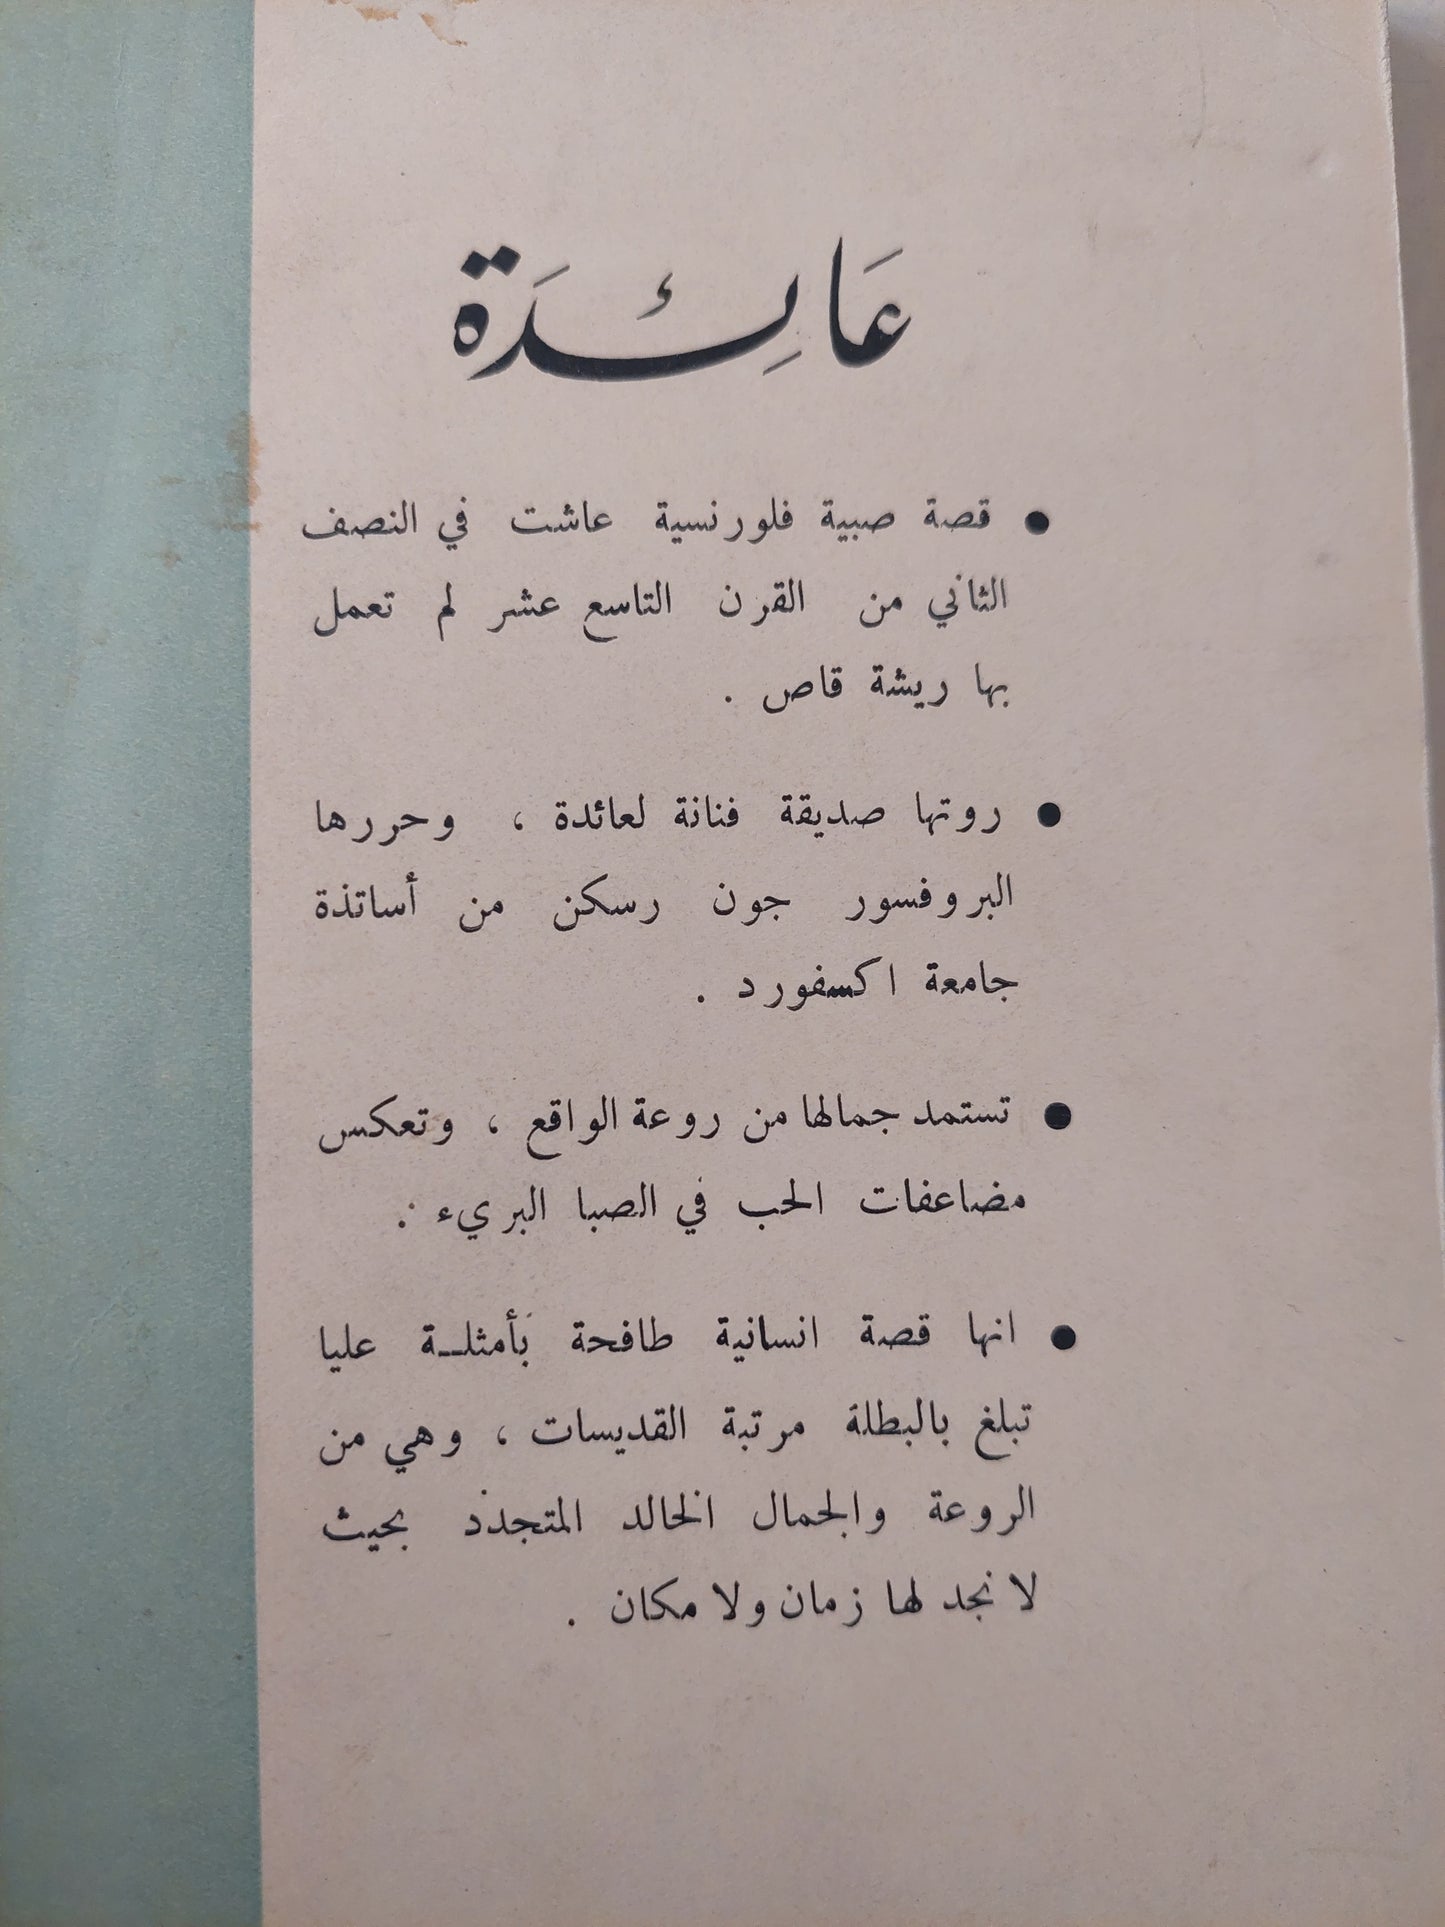 عَائِدَة
● قصة صبية فلورنسية عاشت في النصف
الثاني من القرن التاسع عشر لم تعمل
بها ريشة قاص .
● روتها صديقة فنانة لعائدة ، وحررها
البروفسور جون رسكن من أساتذة
جامعة اكسفورد .
● تستمد جمالها من روعة الواقع ، وتعكس
مضاعفات الحب في الصبا البريء .
● انها قصة انسانية طافحة بأمثلـة عليا
تبلغ بالبطلة مرتبة القديسات ، وهي من
الروعة والجمال الخالد المتجدد بحيث
لا نجد لها زمان ولا مكان .